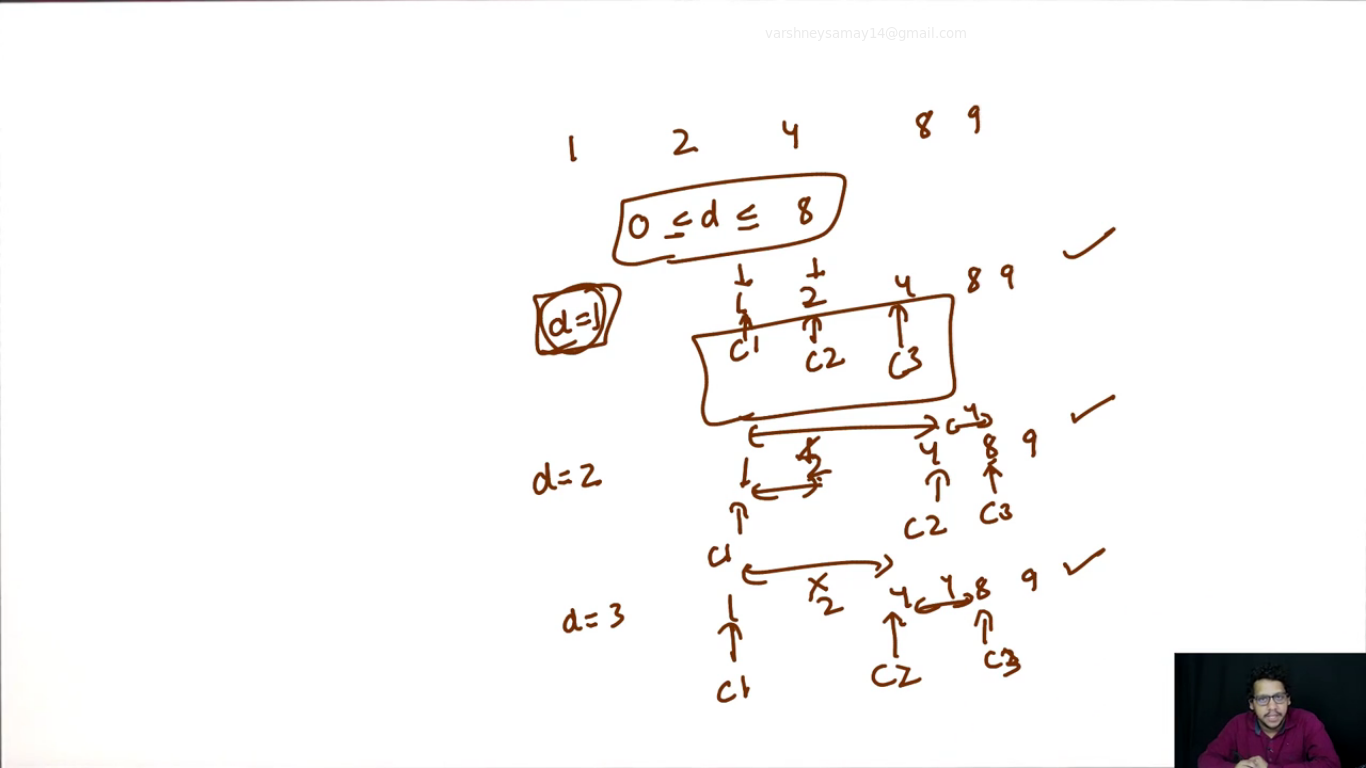 varshneysamay14@gmail.com
1 2 4 8 9
0 ≤ d ≤ 8
1 1
d=1 1 2 4 8 9
C1 C2 C3
4
d=2 1 2 4 8 9
C1 C2 C3
d=3 1 2 4 4 8 9
C1 C2 C3